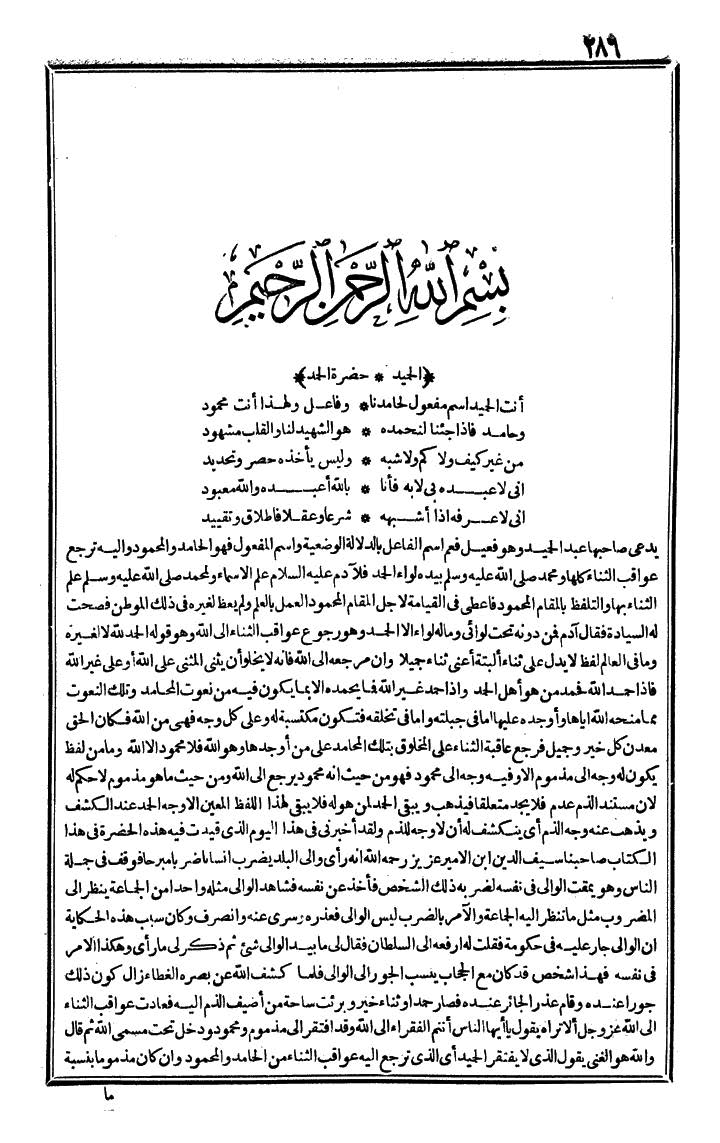 ٢٨٩
بسم الله الرحمن الرحيم
﴿الحميد * حضرة الحمد﴾
أنت الحميد اسم مفعول لحامدنا * وفاعل ولهذا أنت محمود
وحامد فاذا جئنا لنحمده * هو الشهيد لنا والقلب مشهود
من غير كيف ولا كم ولا شبه * وليس يأخذه حصر وتحديد
انى لاعبده بى لا به فأنا * بالله أعبده والله معبود
انى لاعرفه اذا أشبهه * شرعا وعقلا فاطلاق وتقييد
يدعى صاحبها عبد الحميد وهو فعيل فعم اسم الفاعل بالدلالة الوضعية واسم المفعول فهو الحامد والمحمود واليه ترجع
عواقب الثناء كلها ومحمد صلى الله عليه وسلم بيده لواء الحمد فلآدم عليه السلام علم الاسماء ولمحمد صلى الله عليه وسلم علم
الثناء بها والتلفظ بالمقام المحمود فاعطى فى القيامة لاجل المقام المحمود العمل بالعلم ولم يعط لغيره فى ذلك الموطن فصحت
له السيادة فقال آدم فن دونه تحت لوائى وماله لواء الا الحمد وهو رجوع عواقب الثناء الى الله وهو قوله الحمد لله لا لغيره
وما فى العالم لفظ لا يدل على ثناء ألبتة أعنى ثناء جميلا وان مرجعه الى الله فانه لا يخلو أن يثنى المثنى على الله أو على غير الله
فاذا حمد الله فحمد من هو أهل الحمد واذا حمد غير الله فما يحمده الا بما يكون فيه من نعوت المحامد وتلك النعوت
مما منحه الله اياها وأوجده عليها اما فى جبلته واما فى تخلقه فتكون مكتسبة له وعلى كل وجه فهى من الله فكان الحق
معدن كل خير وجميل فرجع عاقبة الثناء على المخلوق بتلك المحامد على من أوجدها وهو الله فلا محمود الا الله وما من لفظ
يكون له وجه الى مذموم الا وفيه وجه الى محمود فهو من حيث انه محمود يرجع الى الله ومن حيث ما هو مذموم لا حكم له
لان مستند الذم عدم فلا يجد متعلقا فيذهب ويبقى الحمد لمن هو له فلا يبقى لهذا اللفظ المعين الا وجه الحمد عند الكشف
ويذهب عنه وجه الذم أى ينكشف له أن لا وجه للذم ولقد أخبرنى فى هذا اليوم الذى قيدت فيه هذه الحضرة فى هذا
الكتاب صاحبنا سيف الدين ابن الامير عزيز رحمه الله انه رأى والى البلد يضرب انسانا ضربا مبرحا فوقف فى جملة
الناس وهو يمقت الوالى فى نفسه لضربه ذلك الشخص فأخذ عن نفسه فشاهد الوالى مثله واحدا من الجماعة ينظر الى
المضروب مثل ما تنظر اليه الجماعة والآمر بالضرب ليس الوالى فعذره وسرى عنه وانصرف وكان سبب هذه الحكاية
ان الوالى جار عليه فى حكومة فقلت له ارفعه الى السلطان فقال لى ما بيد الوالى شئ ثم ذكر لى ما رأى وهكذا الامر
فى نفسه فهذا شخص قد كان مع الحجاب ينسب الجور الى الوالى فلما كشف الله عن بصره الغطاء زال كون ذلك
جورا عنده وقام عذر الجائر عنده فصار حمدا وثناء خير وبرئت ساحة من أضيف الذم اليه فعادت عواقب الثناء
الى الله عز وجل ألا تراه يقول يا أيها الناس أنتم الفقراء الى الله وقد افتقر الى مذموم ومحمود ودخل تحت مسمى الله ثم قال
والله هو الغنى يقول الذى لا يفتقر الحميد أى الذى ترجع اليه عواقب الثناء من الحامد والمحمود وان كان مذموما بنسبة
ما